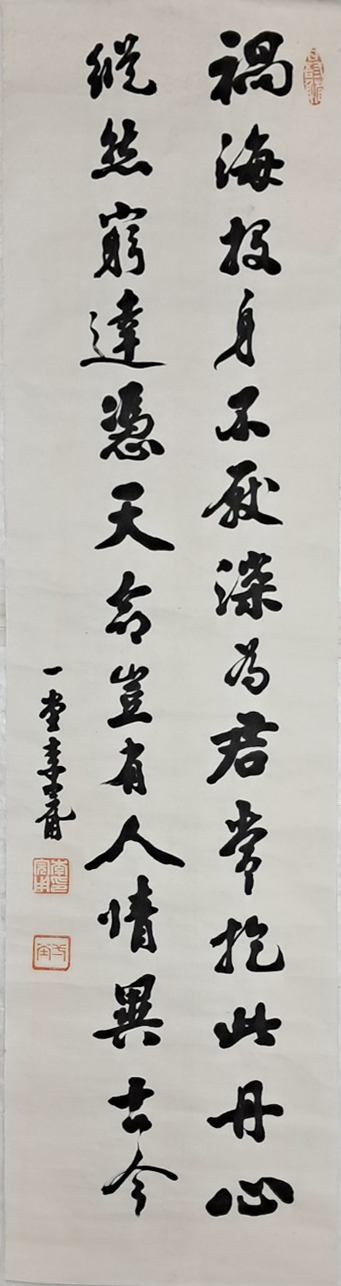 禍海投身不厭深為君常抱此丹心
縱然窮達憑天命豈有人情異古今
一堂李甯